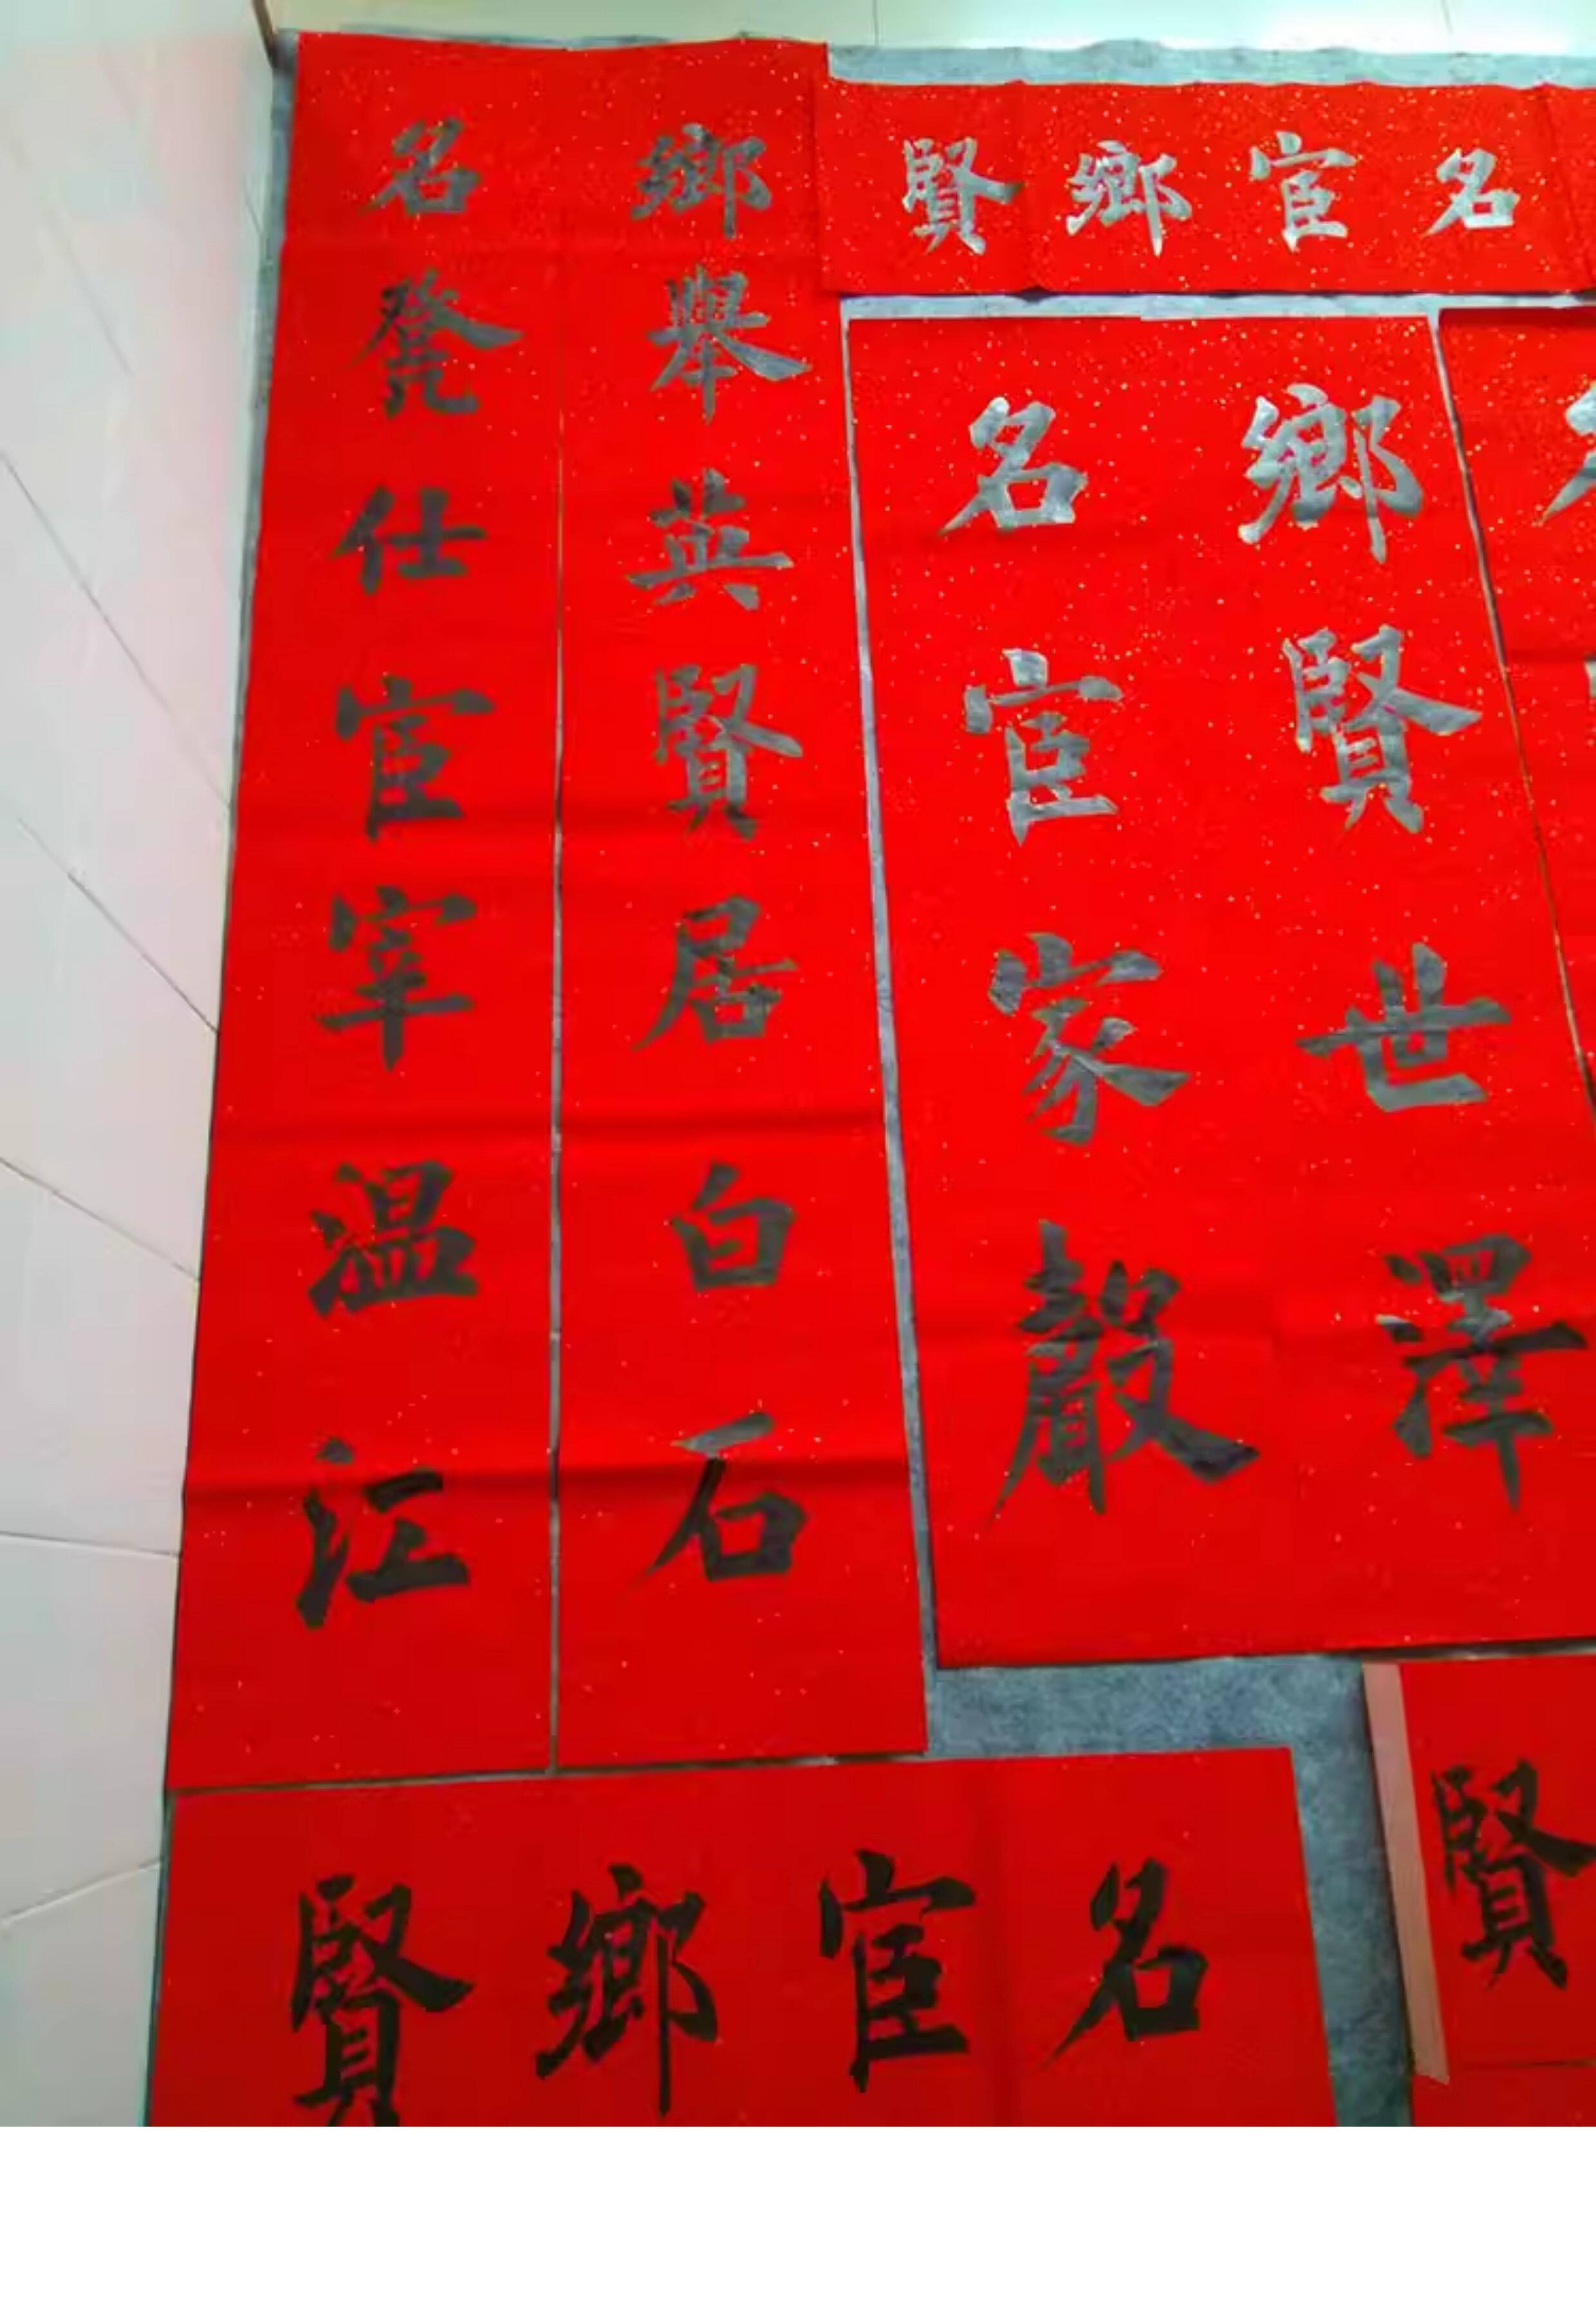 名宦鄉賢
鄉賢世澤
名宦家聲
鄉舉英賢居白石
名登仕宦宰温江
名宦鄉賢
賢